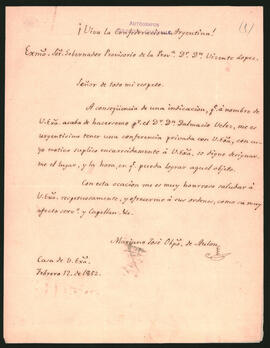 AUTÓGRAFOS
(1)
¡Viva la Confederacion Argentina!
Exmo. Sor. Gobernador Provisorio de la Prova. Dr. Dn. Vicente Lopez.
Señor de todo mi respeto.
A conseqüencia de una indicacion, q. á nombre de
V. Exa. acaba de hacerseme pr. el Dr. Dn. Dalmacio Velez, me es
urgentisimo tener una conferencia privada con V. Exa., con
cuyo motivo suplico encarecidamente á V. Exa. se digne designar
me el lugar, y la hora, en q. pueda lograr aquel objeto.
Con esta ocacion me es muy honroso saludar á
V. Exa. respetuosamente, y ofrecerme á sus ordenes, como su muy
afecto servr. y Capellan
Mariano José Obpo. de Aulon
Casa de V. Exa.
Febrero 12. de 1852.